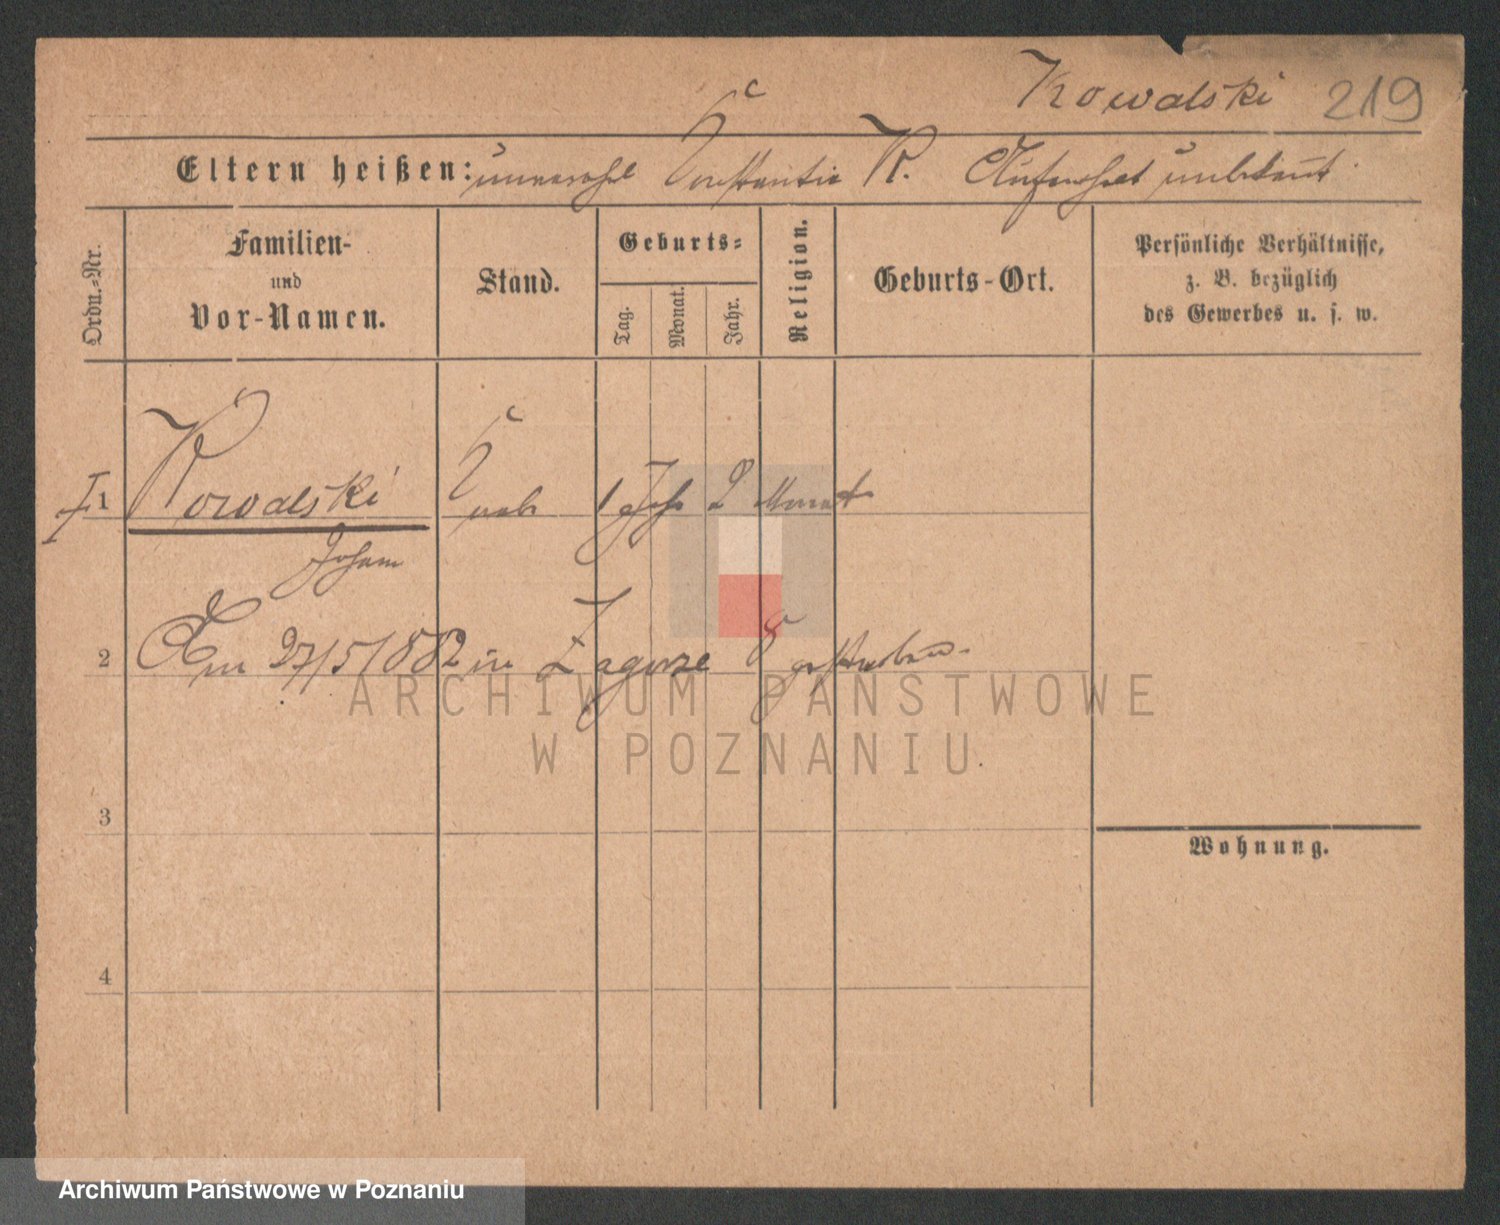 Kowalski 219
Eltern heißen: unverehl Constantia K. Aufenthalt unbekannt.
Ordn.-Nr.
Familien-
und
Vor-Namen.
Stand.
Geburts-
Tag.
Monat.
Jahr.
Religion.
Geburts-Ort.
Persönliche Verhältnisse,
z. B. bezüglich
des Gewerbes u. s. w.
1 Kowalski Knabe 1 Jahr 2 Monate
Johann
2 Am 27/5/882 in Zagorze gestorben.
3
Wohnung.
4
ARCHIWUM PAŃSTWOWE
W POZNANIU
Archiwum Państwowe w Poznaniu